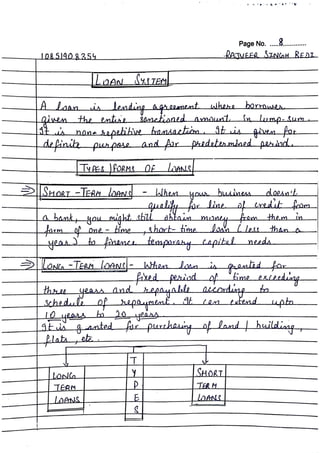 Page No. 8
1085190 8354 RAJVEER SINGH BEDI
LOAN SYSTEM
A loan is lending agreement where borrower
given the entire sanctioned amount in lump-sum.
It is none repetitive transaction. It is given for
definite purpose and for predetermined period.
TYPES / FORMS OF LOANS
SHORT-TERM LOANS - When your business doesn't
qualify for line of credit from
a bank, you might still obtain money from them in
form of one-time, short-time loan (less than a
year) to finance temporary capital needs
LONG-TERM LOANS - When loan is granted for
fixed period of time exceeding
three years and repayable according to
schedule of repayment. It can extend upto
10 years to 20 years
It is granted for purchasing of land / building,
flats, etc.
TYPES
LONG TERM LOANS
SHORT TERM LOANS